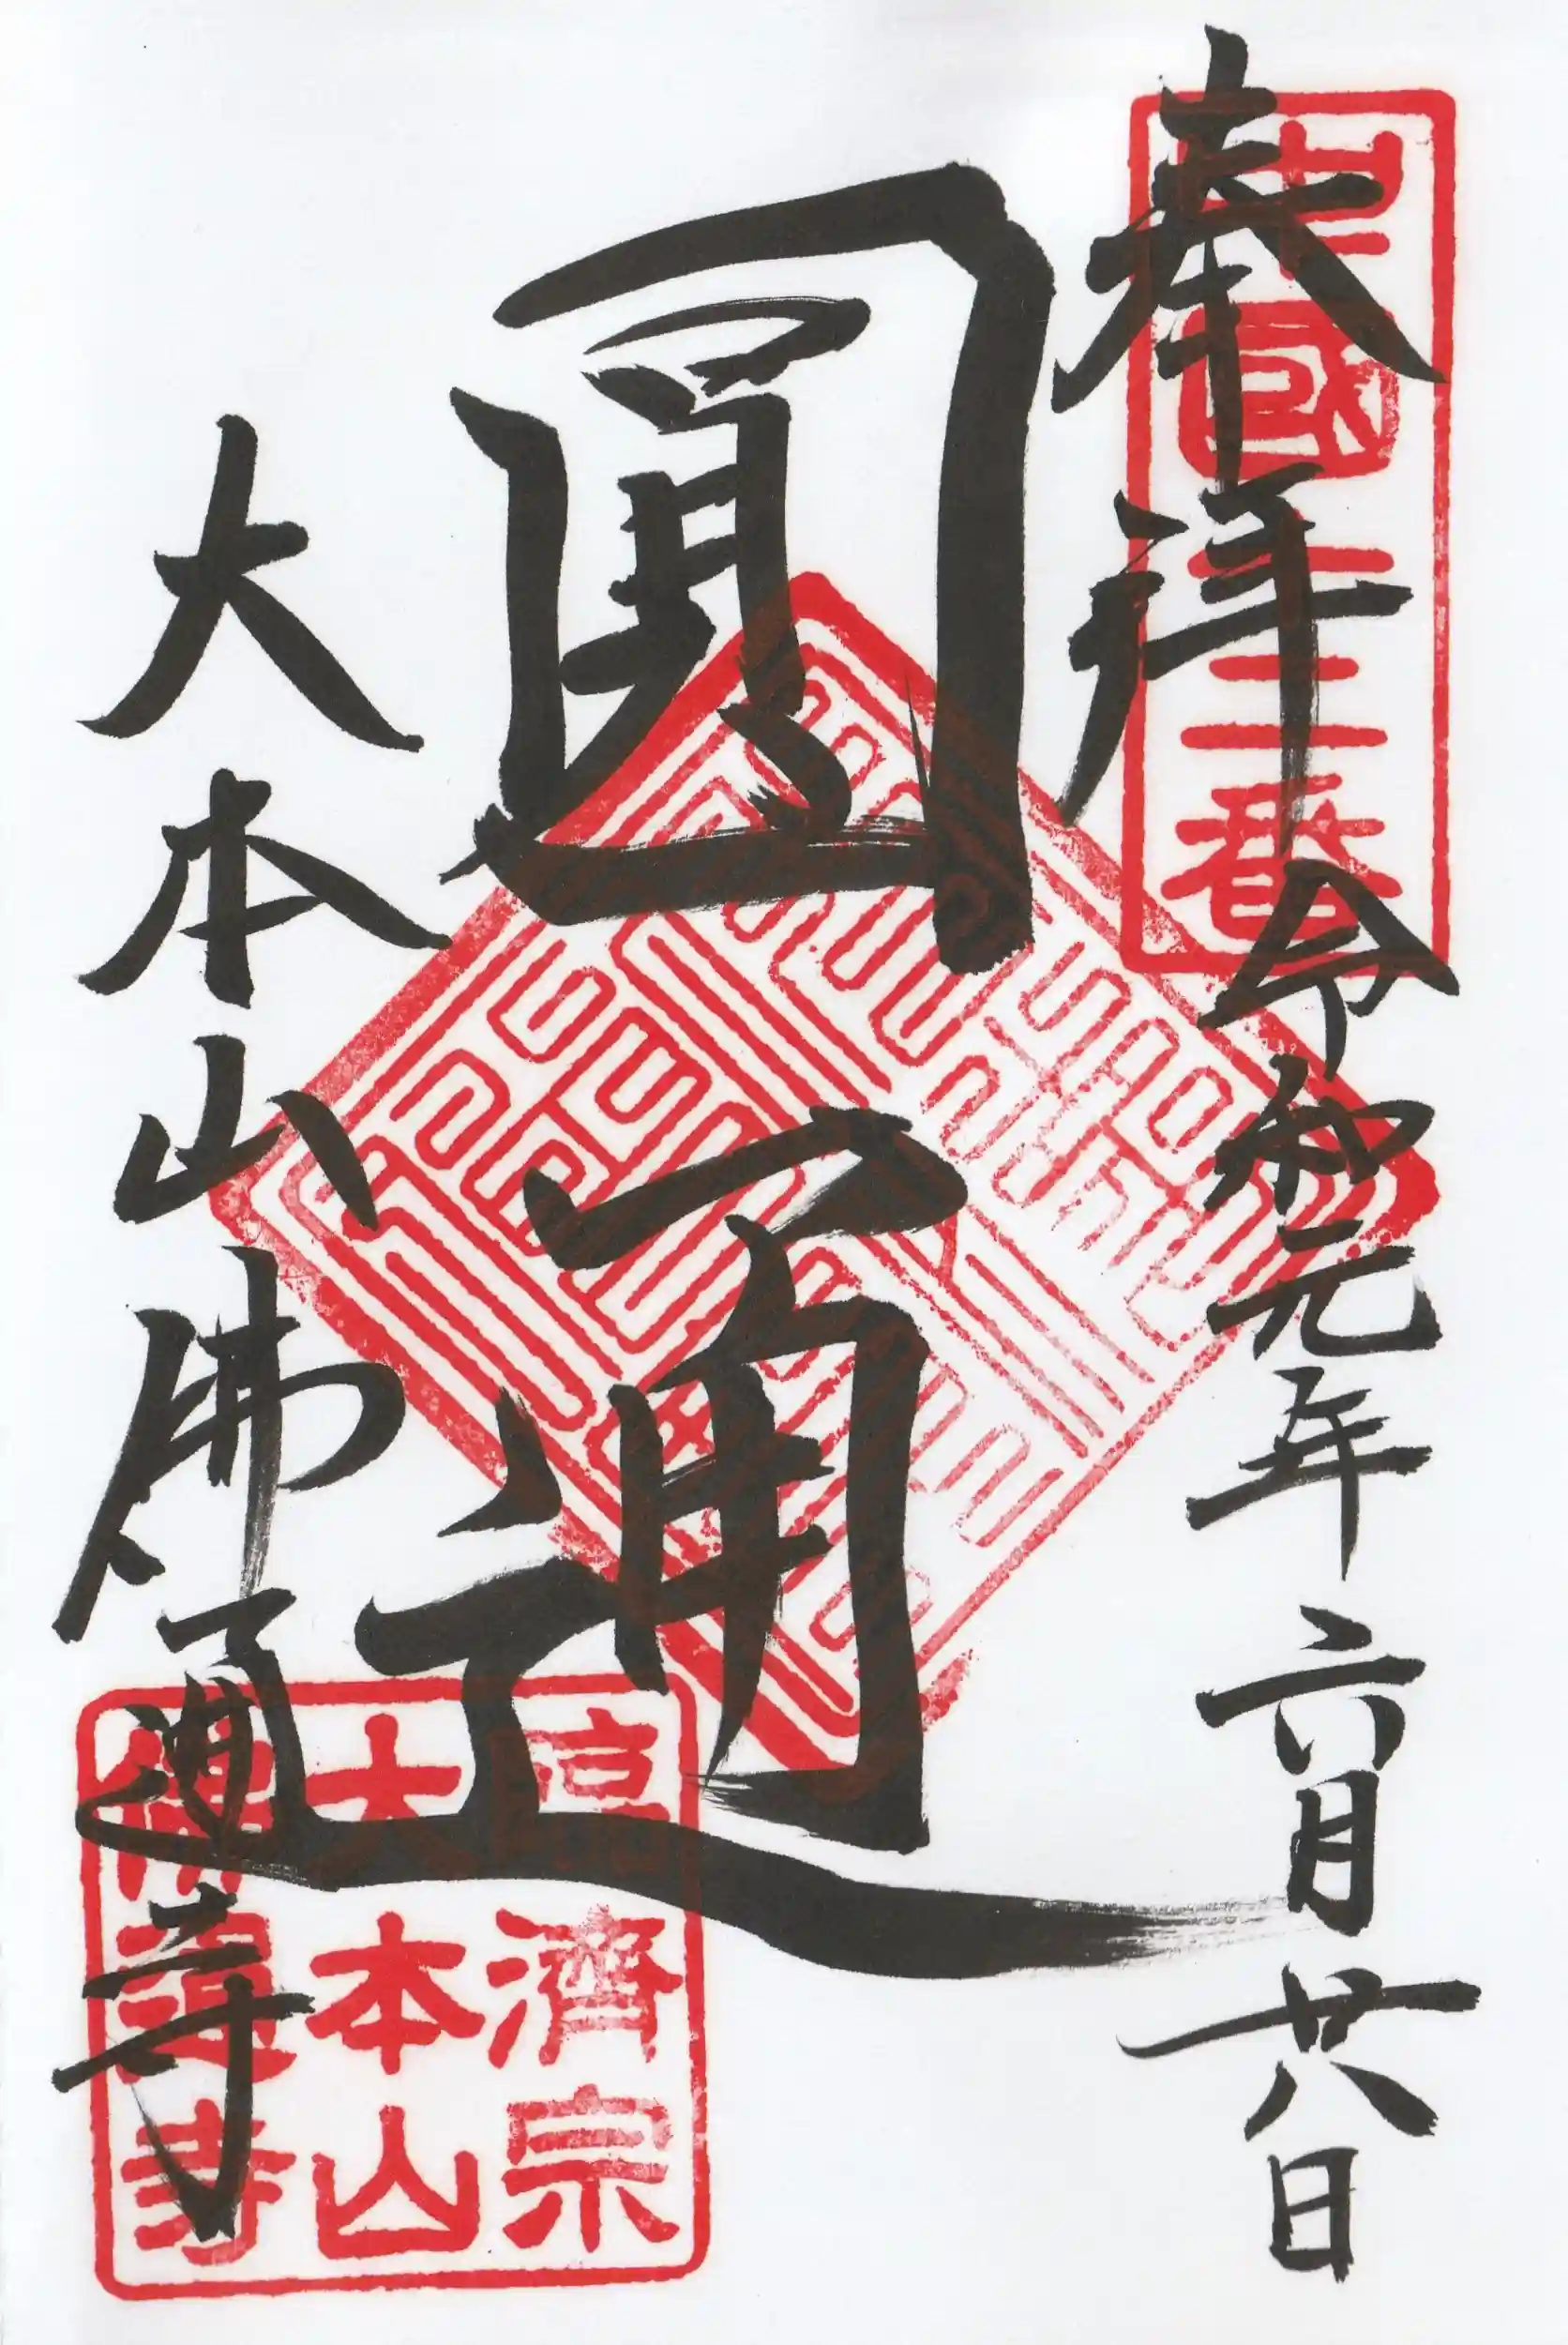 奉拝 令和元年六月廿八日
中國十二番
圓通
大本山佛通寺
臨濟宗
大本山
佛通寺